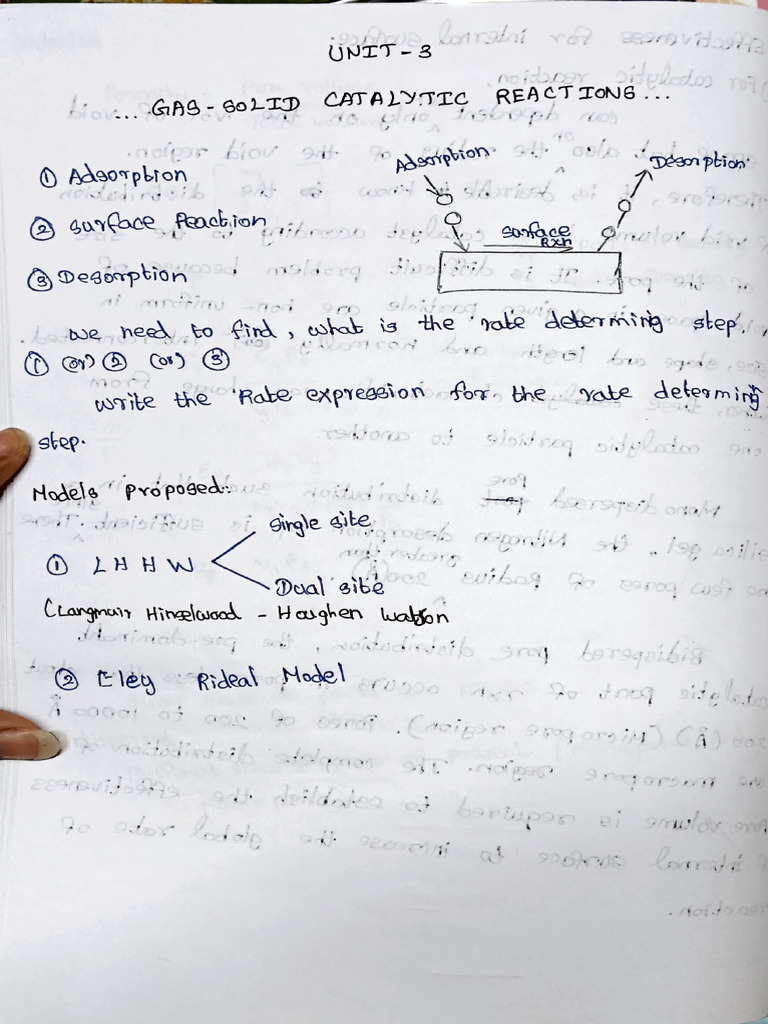 UNIT - 3
... GAS - SOLID CATALYTIC REACTIONS ...
① Adsorption
② Surface Reaction
③ Desorption
Adsorption
Desorption
Surface
Rxn
We need to find, what is the rate determining step.
① (or) ② (or) ③
Write the Rate expression for the rate determining
step.
Models proposed:
① LHHW
Single site
Dual site
(Langmuir Hinselwood - Houghen Watson
② Eley Rideal Model